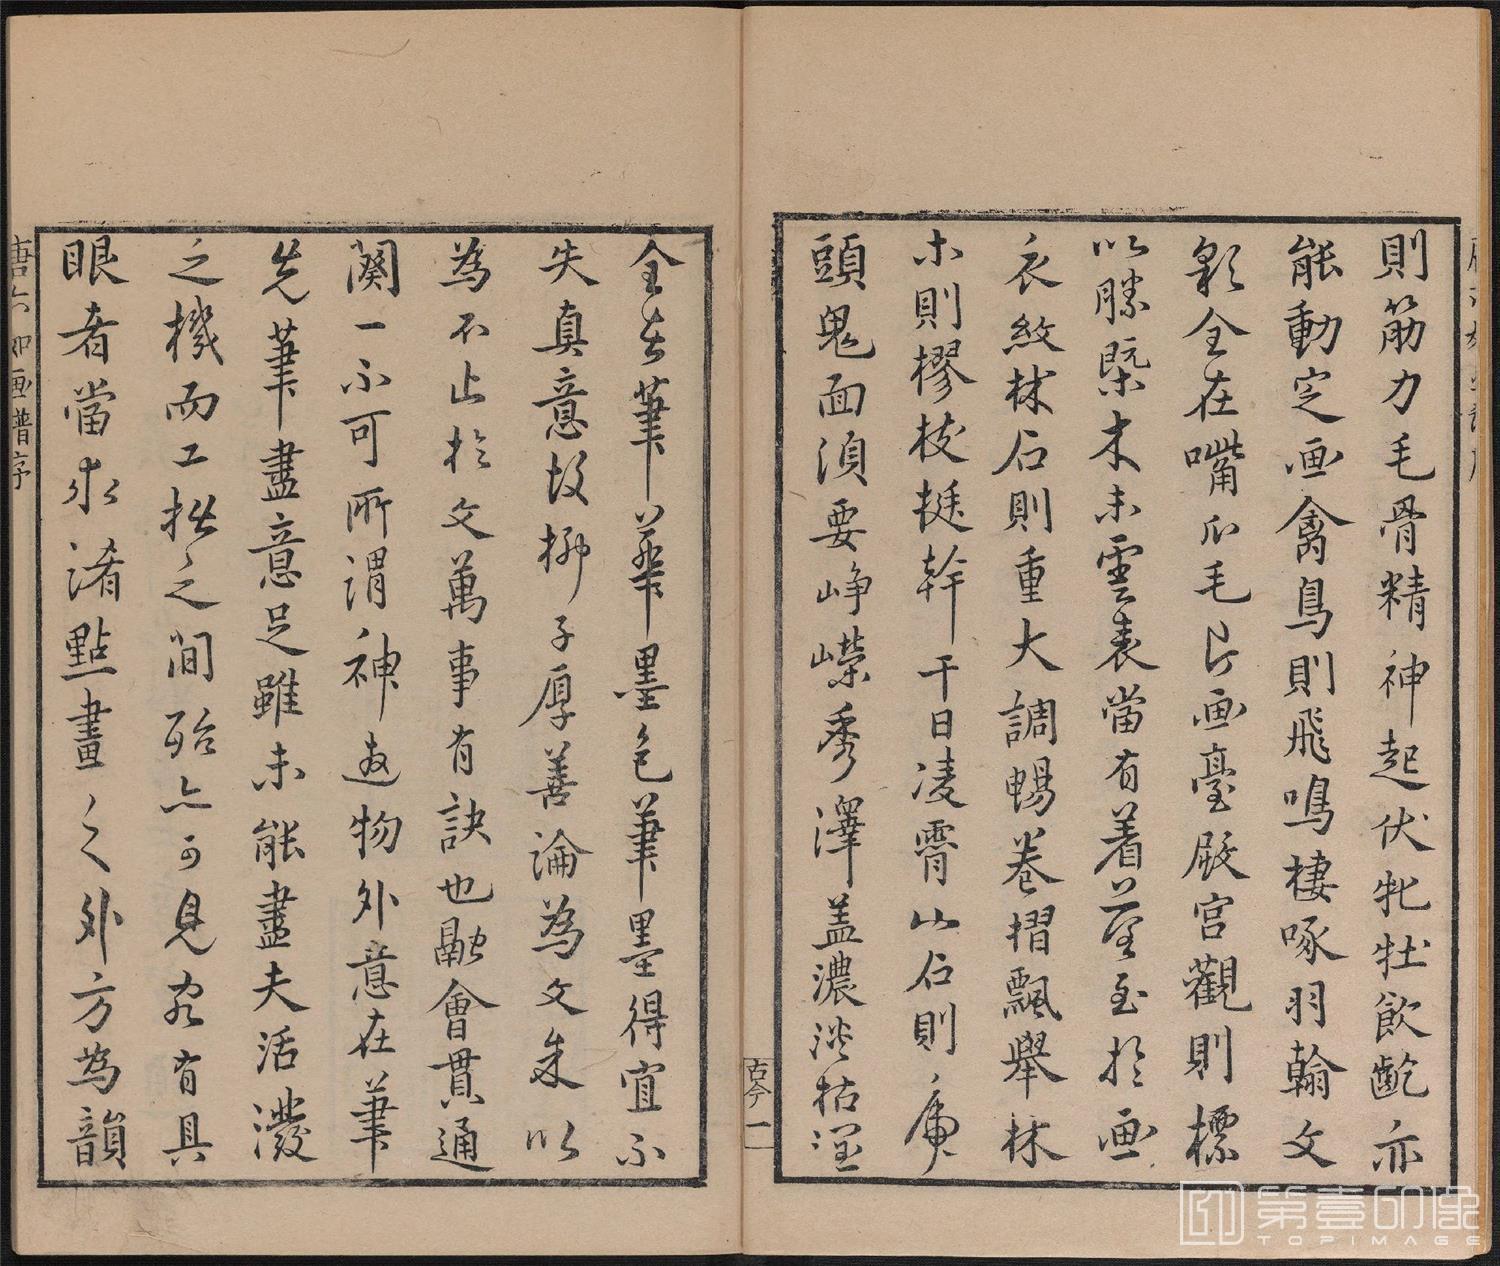 則筋力毛骨精神起伏牝牡飲齕亦
能動定画禽鳥則飛鳴棲啄羽翰文
彩全在嘴爪毛片画臺殿宮觀則標
以勝槩木末雲表當有着落至於画
衣紋林石則重大調暢卷摺飄舉林
木則樛枝挺幹干日凌霄山石則
頭鬼面須要崢嶸秀澤盖濃淡枯溼
全在筆華墨色筆墨得宜不
失真意故柳子厚善論為文朱以
為不止於文萬事有訣也融會貫通
闋一不可所謂神遊物外意在筆
先筆盡意足雖未能盡夫活潑
之機而工拙之間殆亦可見容有具
眼者當求淆點畫之外方為韻
唐六如画譜序
古今一
第壹印像
TOPIMAGE